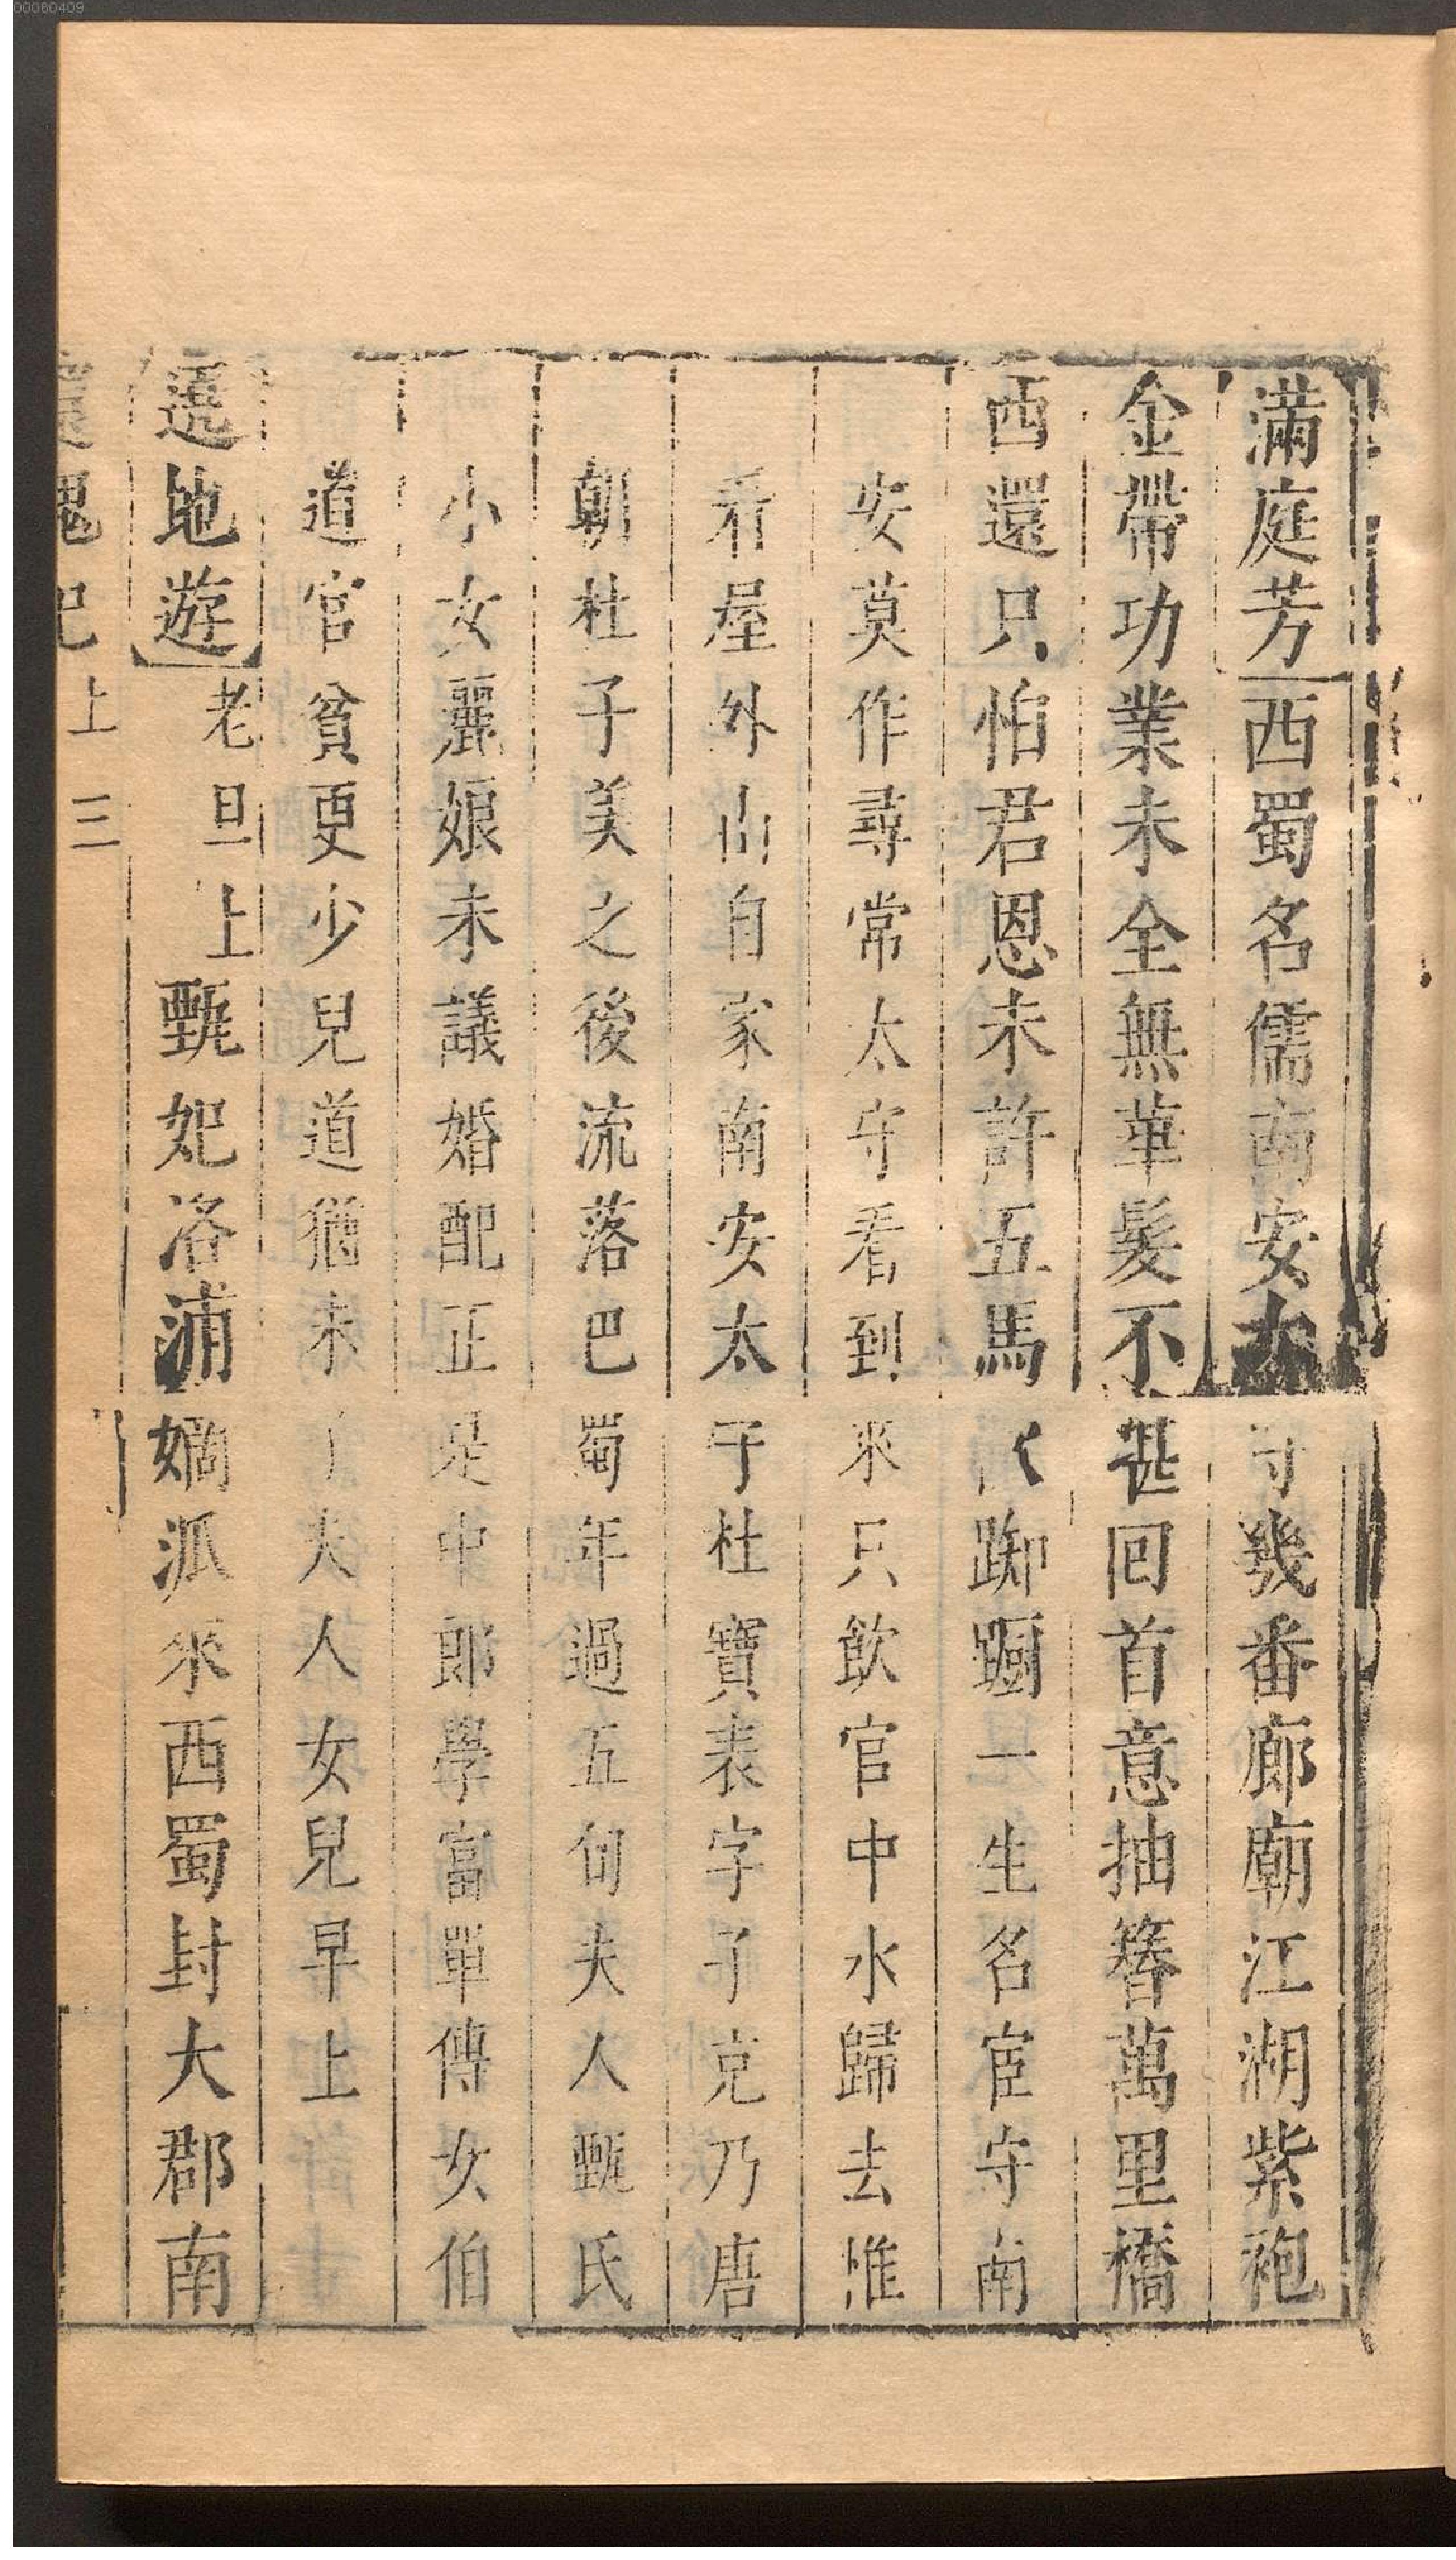 00060409
滿庭芳西蜀名儒南安太守幾番廊廟江湖紫袍
金帶功業未全無華髮不堪回首意抽簪萬里橋
西還只怕君恩未許五馬踟躕一生名宦守南
安莫作尋常太守看到來只飲官中水歸去惟
看屋外山自家南安太守杜寶表字子充乃唐
朝杜子美之後流落巴蜀年過五旬夫人甄氏
小女麗娘未議婚配正是中郎學富單傳女伯
道官貧更少兒道猶未了夫人女兒早上
遶地遊老旦上甄妃洛浦嫡派來西蜀封大郡南
還魂記上 三